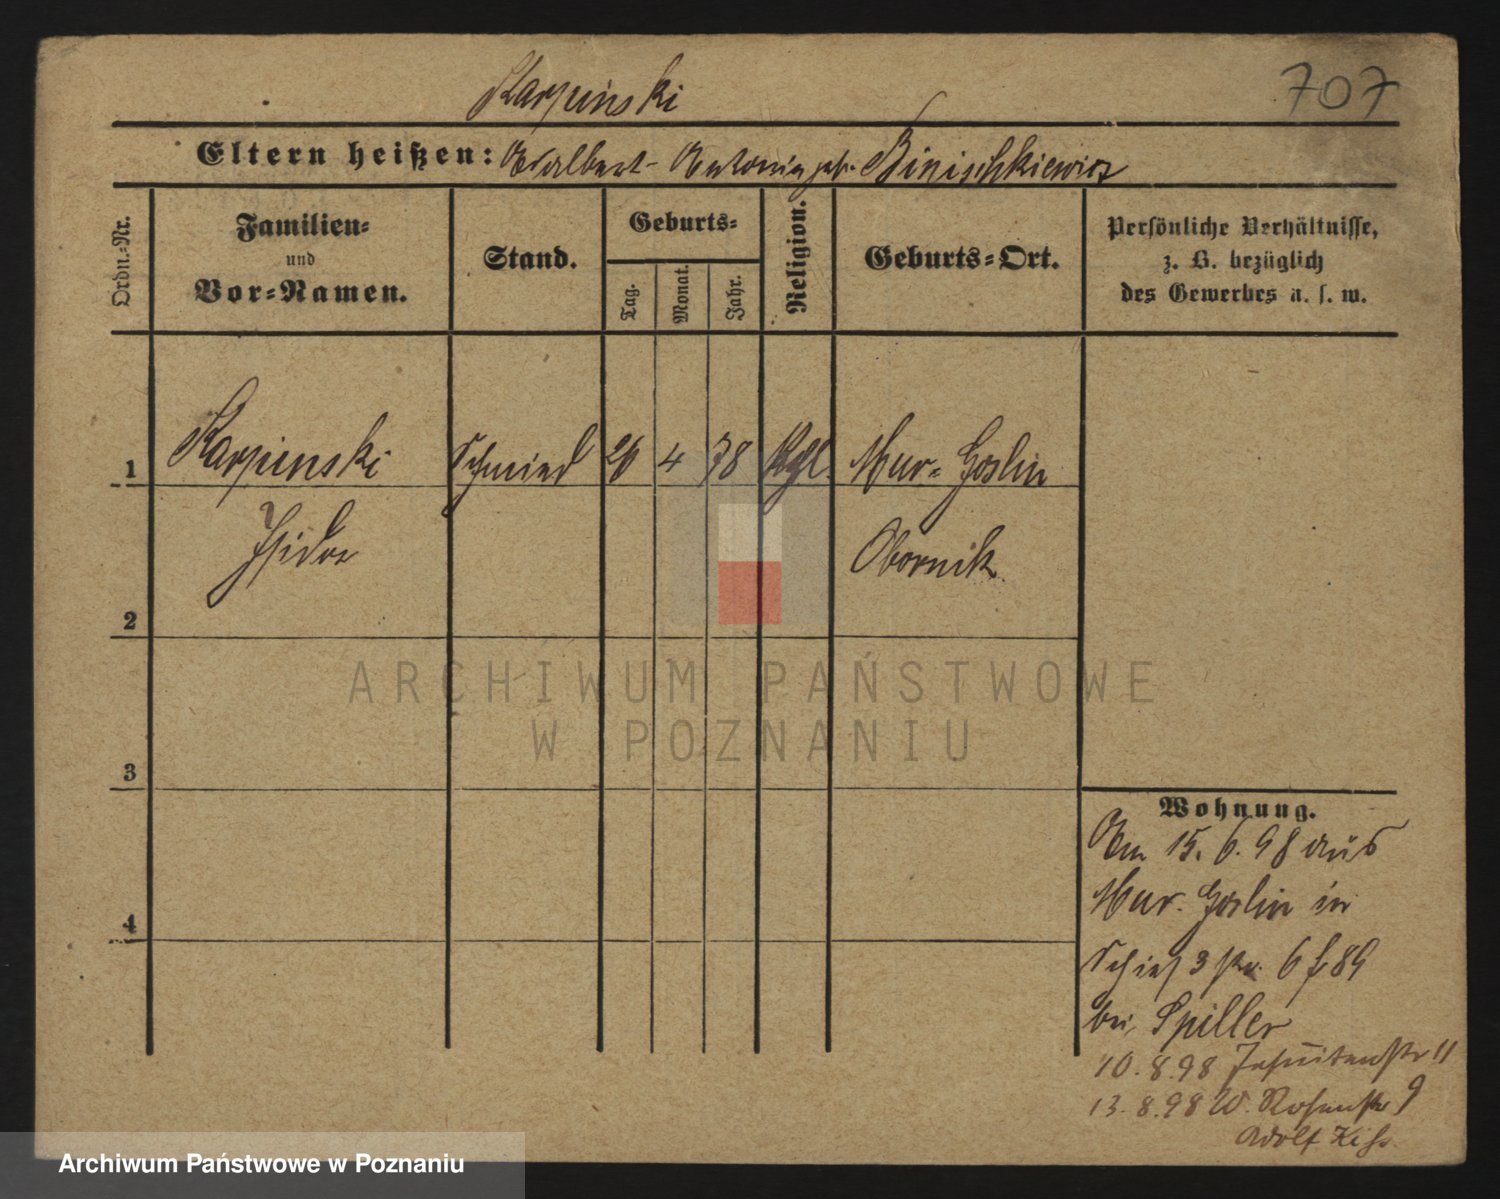 Karpinski
707
Eltern heißen: Adalbert - Antonia geb. Binischkiewicz
Ordn.-Nr.
Familien- und Vor-Namen.
Stand.
Geburts-
Tag.
Monat.
Jahr.
Religion.
Geburts-Ort.
Persönliche Verhältnisse,
z. B. bezüglich
des Gewerbes u. s. w.
1 Karpinski Schmied 26 4 78 Kath. Mur-Goslin
Isidor Obornik
2
3
4
Wohnung.
Am 15. 6. 98 aus
Mur. Goslin in
bei Spiller
10. 8. 98 Jesuitenstr 11
13. 8. 98 W. Rosenstr 9
Adolf
ARCHIWUM PAŃSTWOWE
W POZNANIU
Archiwum Państwowe w Poznaniu